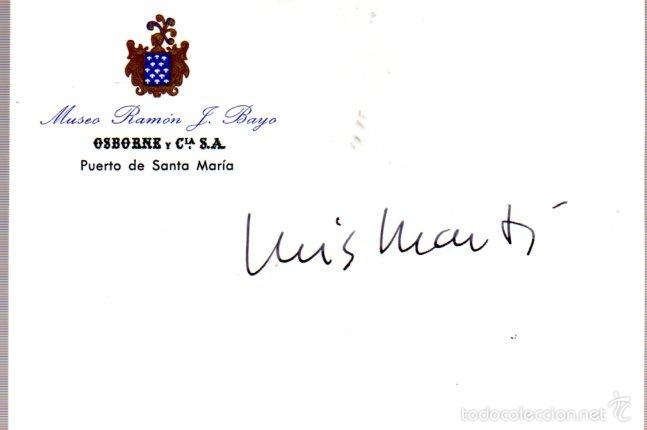 Museo Ramón J. Bayo
OSBORNE Y CIA. S.A.
Puerto de Santa María
Luis Martí
todocoleccion.net tc